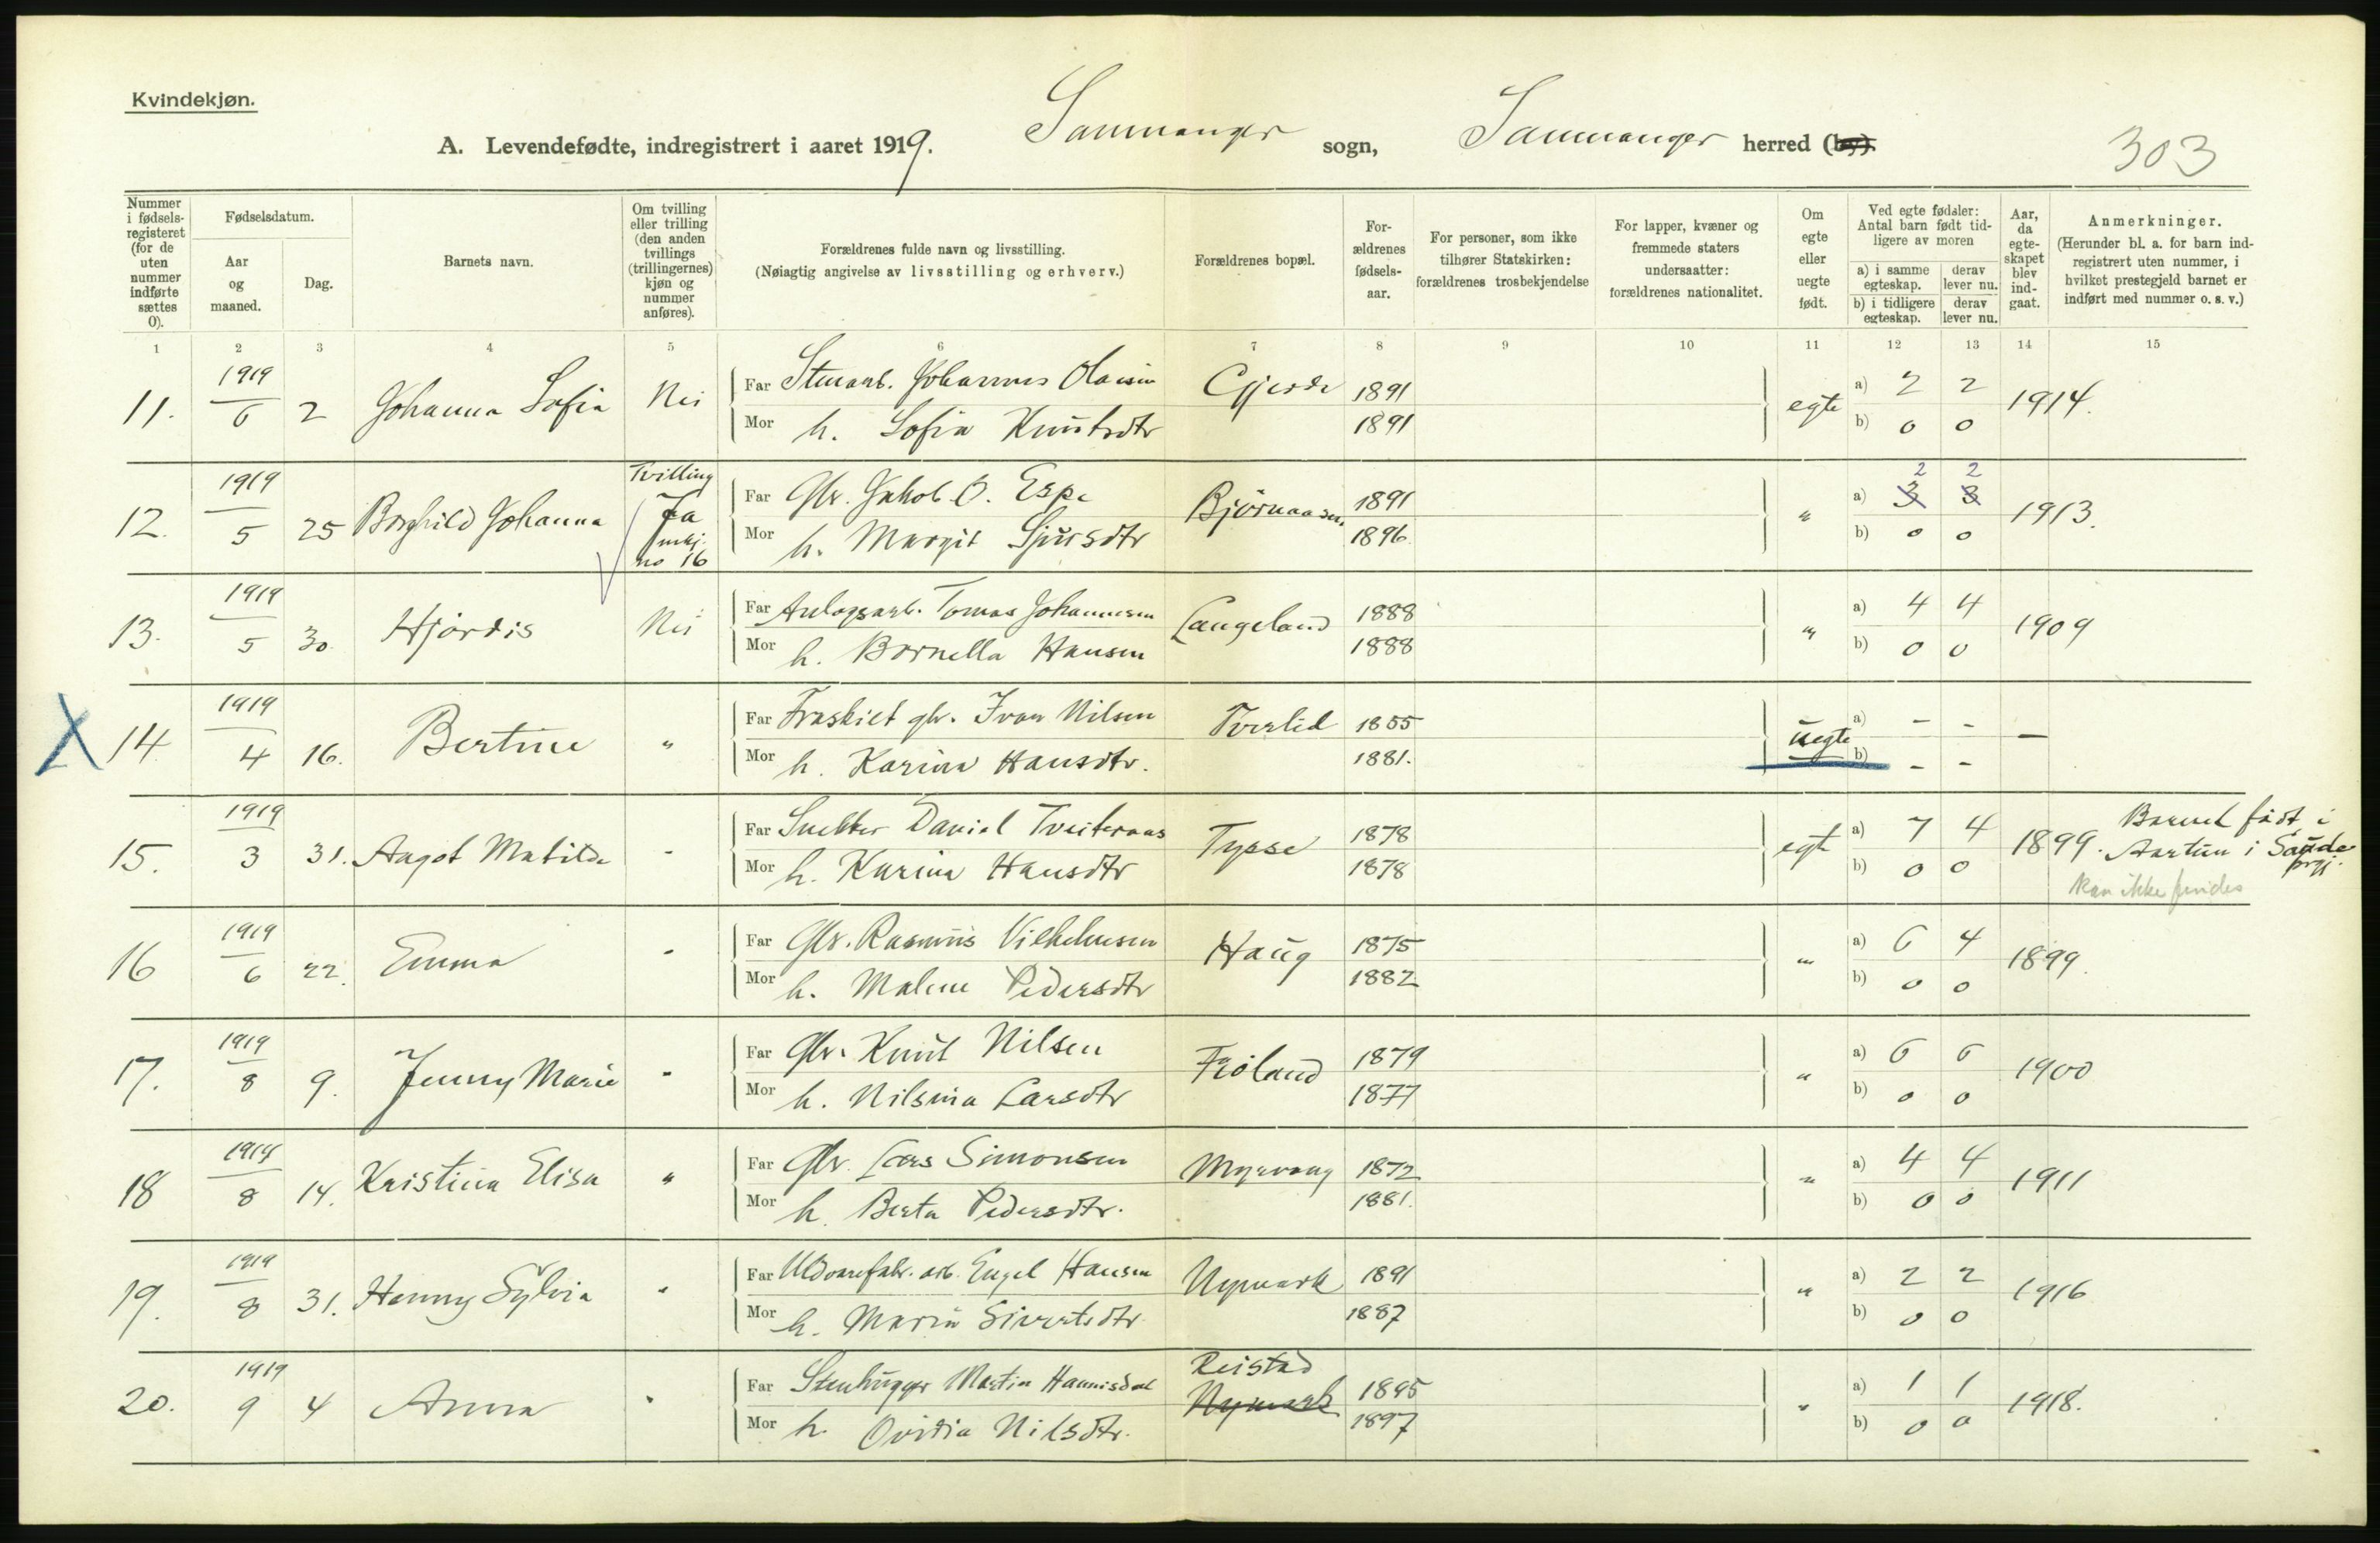 Kvindekjøn.
A. Levendefødte, indregistrert i aaret 1919. Samnanger sogn, Samnanger herred (by). 303
Nummer i fødsels-registeret (for de uten nummer indførte sættes 0).
Fødselsdatum.
Aar og maaned.
Dag.
Barnets navn.
Om tvilling eller trilling (den anden tvillings (trillingernes) kjøn og nummer anføres).
Forældrenes fulde navn og livsstilling.
(Nøiagtig angivelse av livsstilling og erhverv.)
Forældrenes bopæl.
For-ældrenes fødsels-aar.
For personer, som ikke tilhører Statskirken: forældrenes trosbekjendelse
For lapper, kvæner og fremmede staters undersaatter: forældrenes nationalitet.
Om egte eller uegte født.
Ved egte fødsler: Antal barn født tid-ligere av moren
a) i samme egteskap.
derav lever nu.
b) i tidligere egteskap.
derav lever nu.
Aar, da egte-skapet blev ind-gaat.
Anmerkninger.
(Herunder bl. a. for barn ind-registrert uten nummer, i hvilket prestegjeld barnet er indført med nummer o. s. v.)
1 2 3 4 5 6 7 8 9 10 11 12 13 14 15
11. 1919 6 2 Johanna Sofia Nei Far Stenarb. Johannes Olaisen Gjerde 1891 egte a) 2 2 1914.
Mor h. Sofia Knutsdtr 1891 b) 0 0
12. 1919 5 25 Borghild Johanna Tvilling Ja mkj. no 16 Far Gbr. Jakob O. Espe Bjørnaasen 1891 " a) 2 3 2 3 1913.
Mor h. Margit Sjursdtr 1896. b) 0 0
13. 1919 5 30. Hjørdis Nei Far Anlegsarb. Tomas Johannesen Langeland 1888 " a) 4 4 1909
Mor h. Bornella Hansen 1888 b) 0 0
X 14 1919 4 16. Bertine " Far Fraskilt gbr. Ivar Nilsen Tverlid 1855 uegte a) - - -
Mor h. Karina Hansdtr. 1881. b) - -
15. 1919 3 31. Aagot Matilde - Far Snekker Daniel Tveiteraas Tysse 1878 egte a) 7 4 1899. Barnet født i Aartun i Saude prgj.
Mor h. Karina Hansdtr 1878 b) 0 0 kan ikke findes
16 1919 6 22. Emma - Far Gbr. Rasmus Vilhelmsen Haug 1875 " a) 6 4 1899.
Mor h. Malene Pedersdtr 1882 b) 0 0
17. 1919 8 9. Jenny Marie " Far Gbr. Knut Nilsen Frøland 1879 " a) 6 6 1900
Mor h. Nilsina Larsdtr 1877 b) 0 0
18 1919 8 14. Kristina Elisa " Far Gbr. Lars Simonsen Myrvang 1872 " a) 4 4 1911
Mor h. Berta Pedersdtr. 1881. b) 0 0
19. 1919 8 31. Henny Sylvia " Far Uldvarefabr. arb. Engel Hansen Nymark 1891 " a) 2 2 1916
Mor h. Maria Sivertsdtr 1887 b) 0 0
20. 1919 9 4 Anna " Far Stenhugger Martin Hannisdal Reistad Nymark 1895 " a) 1 1 1918.
Mor h. Ovidia Nilsdtr. 1897 b) 0 0